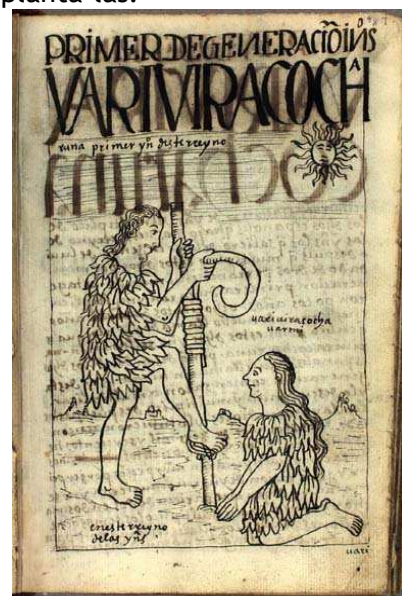 planta las.
PRIMER DE GENERACIŌ INS
VARIVIRACOCHA
runa primer yn̄ deste rreyno
uariuiracocha
uarmi
en este rreyno
de las yn̄s
uari